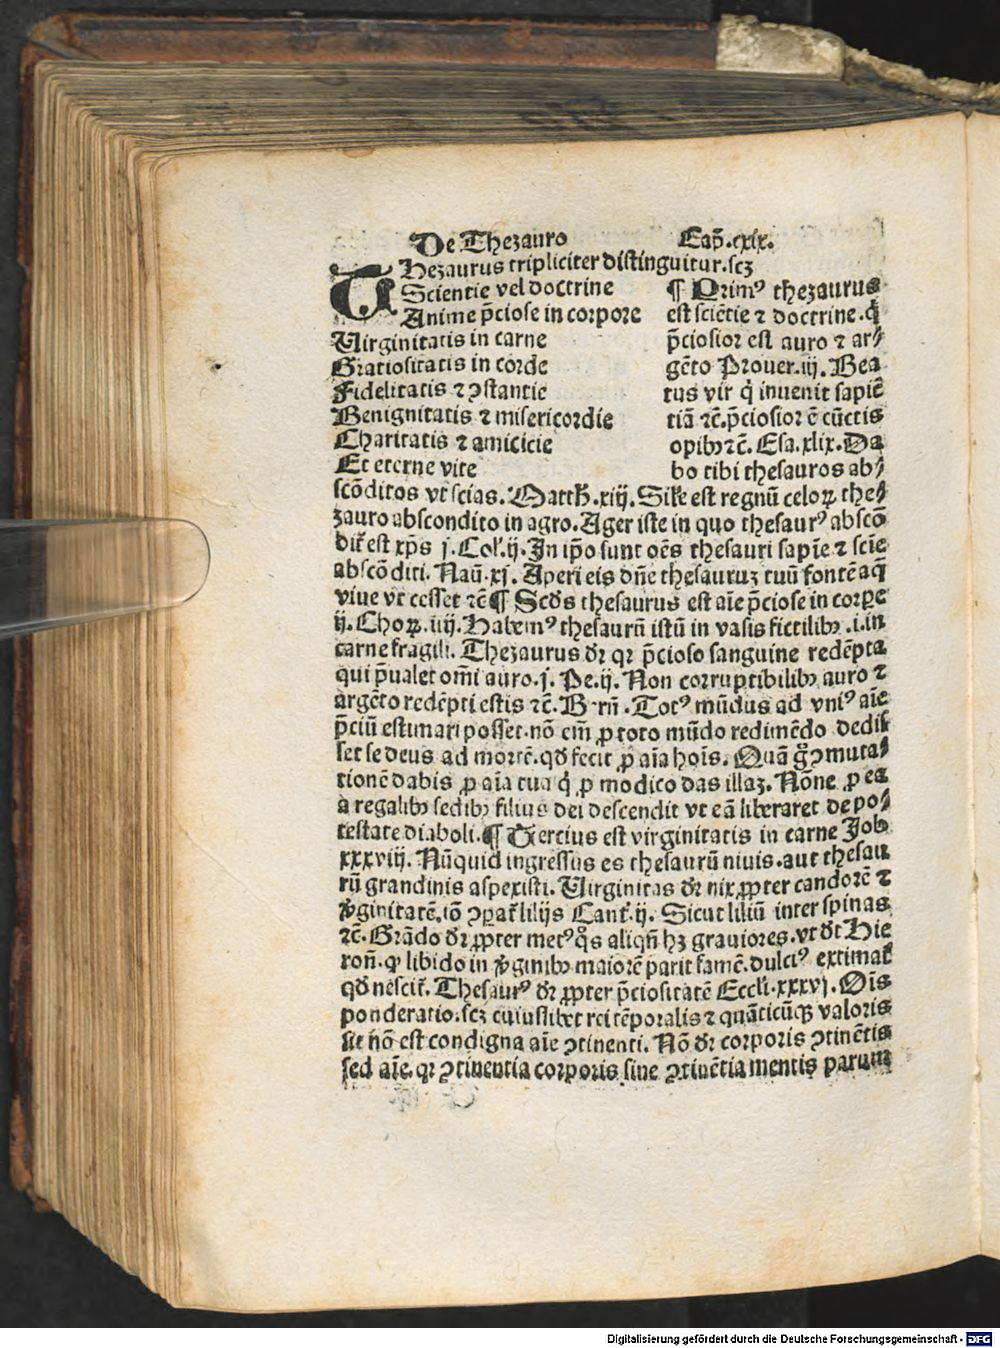 De Thezauro Cap̃.cxix.
THezaurus tripliciter distinguitur.scz
Scientie vel doctrine
Anime p̃ciose in corpore
Uirginitatis in carne
Gratiositatis in corde
Fidelitatis ⁊ ꝯstantie
Benignitatis ⁊ misericordie
Charitatis ⁊ amicicie
Et eterne vite
¶ Primꝰ thezaurus
est sciẽtie ⁊ doctrine.q̇
p̃ciosior est auro ⁊ ar⸗
gẽto Prouer.iij. Bea
tus vir q̇ inuenit sapiẽ
tiã ⁊c̃.p̃ciosior ẽ cũctis
opibꝫ ⁊c̃. Esa.xlix. Da
bo tibi thesauros ab⸗
scõditos vt scias. Matth̃.xiij. Sil̃e est regnũ celoꝝ the⸗
zauro abscondito in agro. Ager iste in quo thesaurꝰ abscõ
dit̃ est xp̃s j. Col̃.ij. In ip̃o sunt oẽs thesauri sapiẽ ⁊ sciẽ
abscõditi. Naũ.xj. Aperi eis dñe thesauruꝫ tuũ fontẽ aq̃
viue vt cesset ⁊c̃ ¶ Scd̃s thesaurus est aĩe p̃ciose in corꝑe
ij. Choꝝ. iiij. Habemꝰ thesaurũ istũ in vasis fictilibꝫ .i. in
carne fragili. Thezaurus dr̃ qꝛ p̃cioso sanguine redẽpta
qui p̃ualet om̃i auro. j. Pe.ij. Non corruptibilibꝫ auro ⁊
argẽto redẽpti estis ⁊c̃. B̃rñ. Totꝰ mũdus ad vniꝰ aĩe
p̃ciũ estimari posset.nõ em̃ ꝓ toto mũdo redimẽdo dedis
set se deus ad mortẽ.qđ fecit ꝓ aĩa hoĩs. Quã g̊ ꝯmuta⸗
tionẽ dabis ꝓ aĩa tua q̇ ꝓ modico das illaꝫ. Nõne ꝓ ea
a regalibꝫ sedibꝫ filius dei descendit vt eã liberaret de po⸗
testate diaboli. ¶ Tercius est virginitatis in carne Job
xxxviij. Nũquid ingressus es thesaurũ niuis.aut thesau
rũ grandinis aspexisti. Uirginitas dr̃ nix ꝓpter candorẽ ⁊
ṽginitatẽ.iõ ꝯparat̃ lilijs Cant̃.ij. Sicut liliũ inter spinas
⁊c̃. Grãdo dr̃ ꝓpter metꝰ q̊s aliqñ hꝫ grauiores.vt dt̃ Hie
roñ. ꝙ libido in ṽginibꝫ maiorẽ parit famẽ.dulciꝰ extimat̃
qđ nescit̃. Thesaurꝰ dr̃ ꝓpter p̃ciositatẽ Eccl̃i.xxxvj. Oĩs
ponderatio.scꝫ cuiuslibet rei tẽporalis ⁊ quãticũqꝫ valoris
sit nõ est condigna aĩe ꝯtinenti. Nõ dr̃ corporis ꝯtinẽtis
sed aĩe.qꝛ ꝯtinentia corporis sine ꝯtinẽtia mentis parum
Digitalisierung gefördert durch die Deutsche Forschungsgemeinschaft - DFG